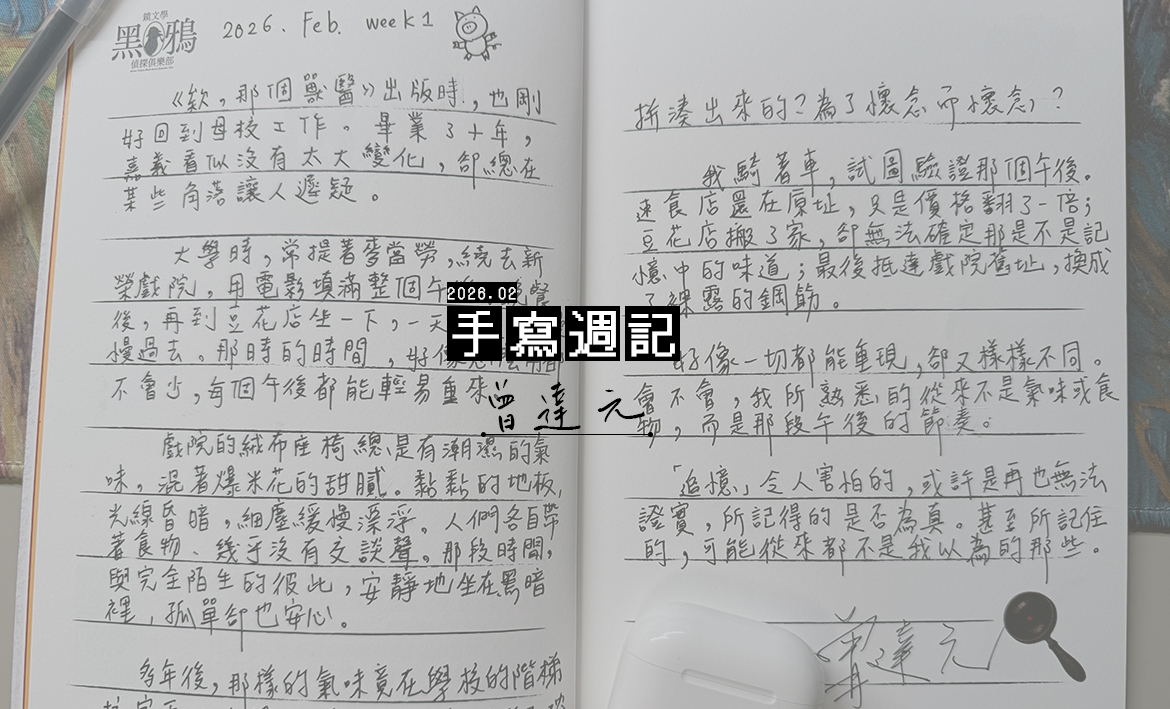 鏡文學
黑鴉
偵探俱樂部
2026. Feb. week1
《欸,那個獸醫》出版時,也剛
好回到母校工作。畢業了十年,
嘉義看似沒有太大變化,卻總在
某些角落讓人遲疑。
大學時,常提著麥當勞,繞去新
榮戲院,用電影填滿整個午
後,再到豆花店坐一下,一天
慢過去。那時的時間,好像
不會少,每個午後都能輕易重來
戲院的絨布座椅總是有潮濕的氣
味,混著爆米花的甜膩。黏黏的地板,
光線昏暗,細塵緩慢漂浮。人們各自帶
著食物、幾乎沒有交談聲。那段時間,
與完全陌生的彼此,安靜地坐在黑暗
裡,孤單卻也安心。
多年後,那樣的氣味竟在學校的階梯
2026.02
手寫週記
曾達元
拼湊出來的?為了懷念而懷念,?
我騎著車,試圖驗證那個午後。
速食店還在原址,只是價格翻了一倍;
豆花店搬了家,卻無法確定那是不是記
憶中的味道;最後抵達戲院舊址,換成
了裸露的鋼筋。
好像一切都能重現,卻又樣樣不同。
會不會,我所熟悉的從來不是氣味或食
物,而是那段午後的節奏。
「追憶」令人害怕的,或許是再也無法
證實,所記得的是否為真。甚至所記住
的,可能從來都不是我以為的那些。
曾達元